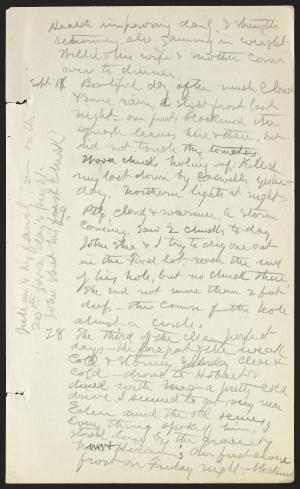 Health improving daily, & strength
returning, also gaming in weight.
Willie & his wife & mother come
over to dinner.
Sept 18 Beautiful day after much cloud
& some rain, a slight frost last
night - our first, blackened the
squash leaves here & there, but
did not touch the tomatoes.
Woodchucks holing up. Killed
my last down by Caswells yester-
day. Northern lights at night.
19. Ptly cloudy & warmer. A storm
coming. Saw 2 chucks to-day
John Shea & I try to dig one out
in the first lot - reach the end
of his hole, but no chuck there
The end not more than 2 feet
deep - the course of the hole
almost a circle.
28 The third of the clear perfect
days - the fore part of the week
cold & stormy. Yesterday clear &
cold - drove to Hobart &
dined with Mag - a pretty cold
drive. I seemed to get very near
Eden amid the old scenes,
Every thing spoke of him, I
stood long by the graves of
him & Hiram; Our first severe
frost on Friday night; - blackened
Julian & his family came on the
20th for a day & night
John shot his first chuck